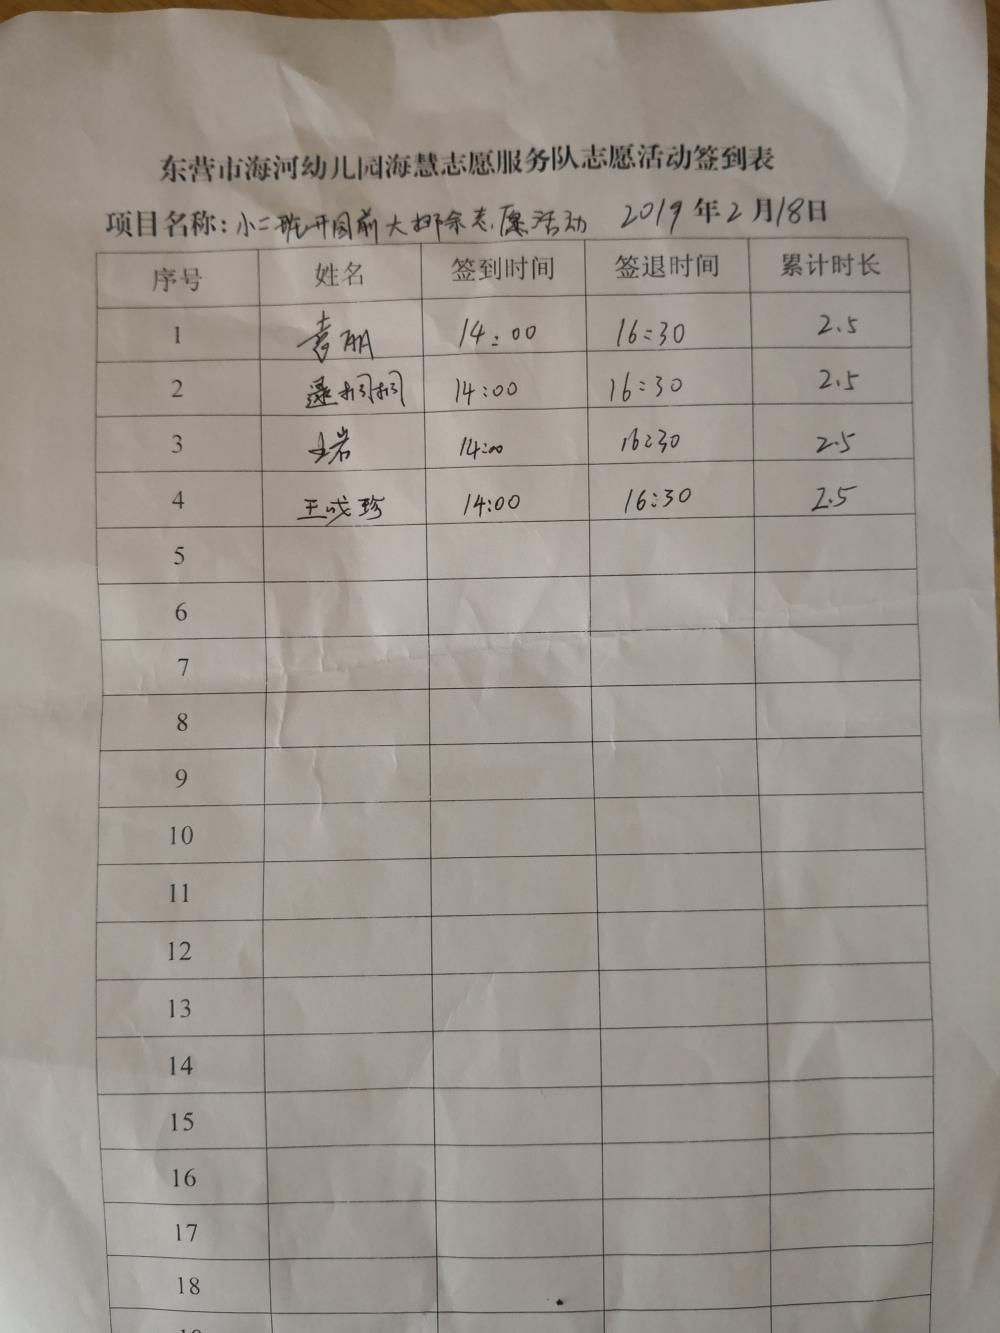 东营市海河幼儿园海慧志愿服务队志愿活动签到表
项目名称：小二班开园前大扫除志愿活动 2019年2月18日
序号 姓名 签到时间 签退时间 累计时长
1 袁丽 14:00 16:30 2.5
2 14:00 16:30 2.5
3 王岩 14:00 16:30 2.5
4 王成珍 14:00 16:30 2.5
5
6
7
8
9
10
11
12
13
14
15
16
17
18